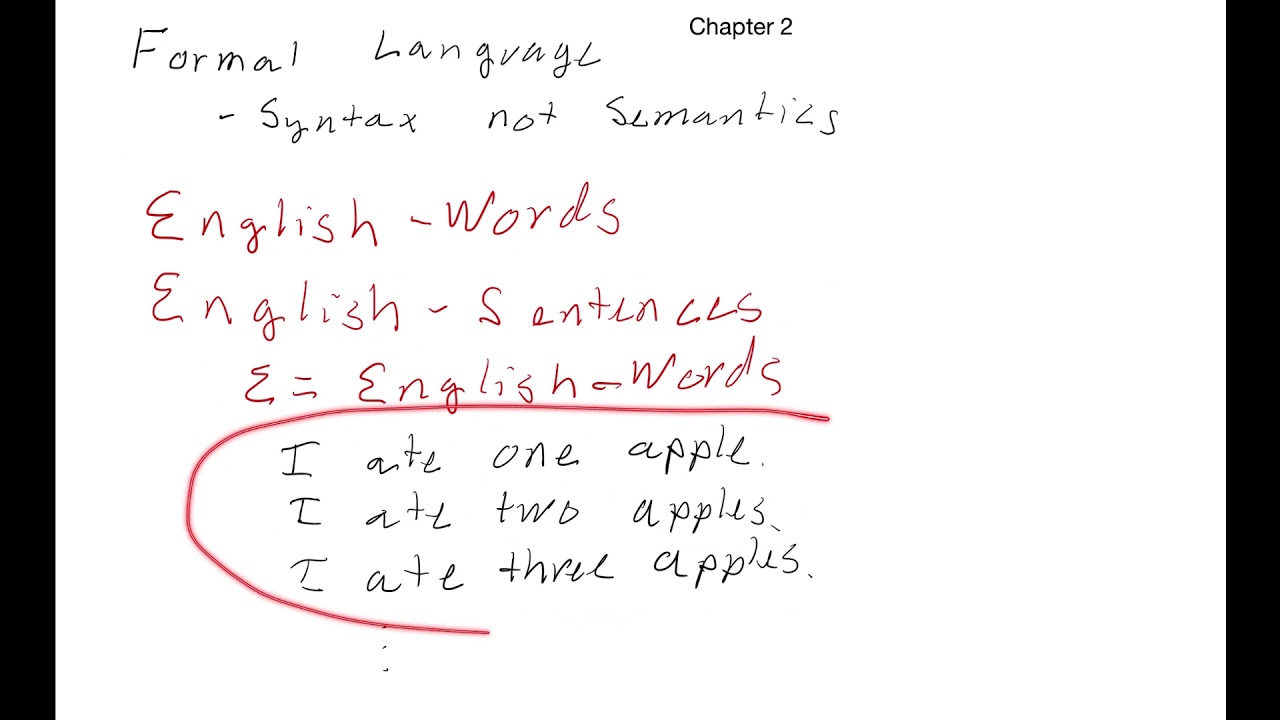 Chapter 2
Formal Language
- Syntax not Semantics
English-Words
English-Sentences
Σ = English-Words
I ate one apple.
I ate two apples.
I ate three apples.
⋮